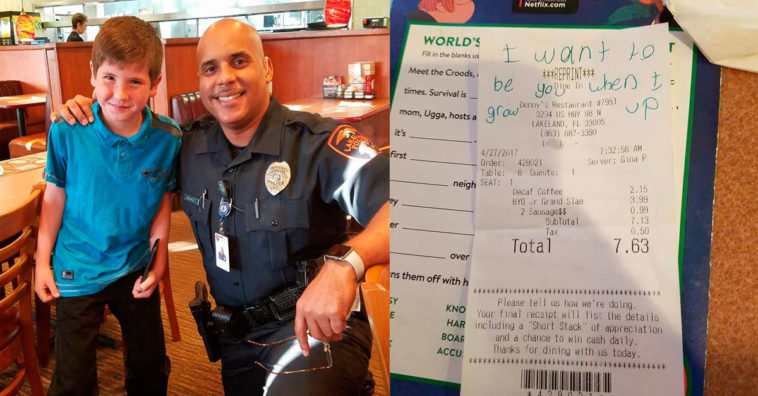 LAKELAND
Netflix.com
WORLD'S
Fill in the blanks us
Meet the Croods,
times. Survival is
mom, Ugga, hosts a
it's
first
neigh
over
ns them off with h
KNO
HAR
BOAR
ACCU
I want to
be you when I
grow up
***REPRINT***
Denny's Restaurant #7951
3234 US HWY 98 N
LAKELAND, FL 33805
(863) 687-3380
4/27/2017 7:32:58 AM
Order: 428021 Server: Gina P
Table: 6 Guests: 1
SEAT: 1
Decaf Coffee 2.15
BYO Jr Grand Slam 3.99
2 Sausage$$ 0.99
SubTotal 7.13
Tax 0.50
Total 7.63
Please tell us how we're doing.
Your final receipt will list the details
including a "Short Stack" of appreciation
and a chance to win cash daily.
Thanks for dining with us today.